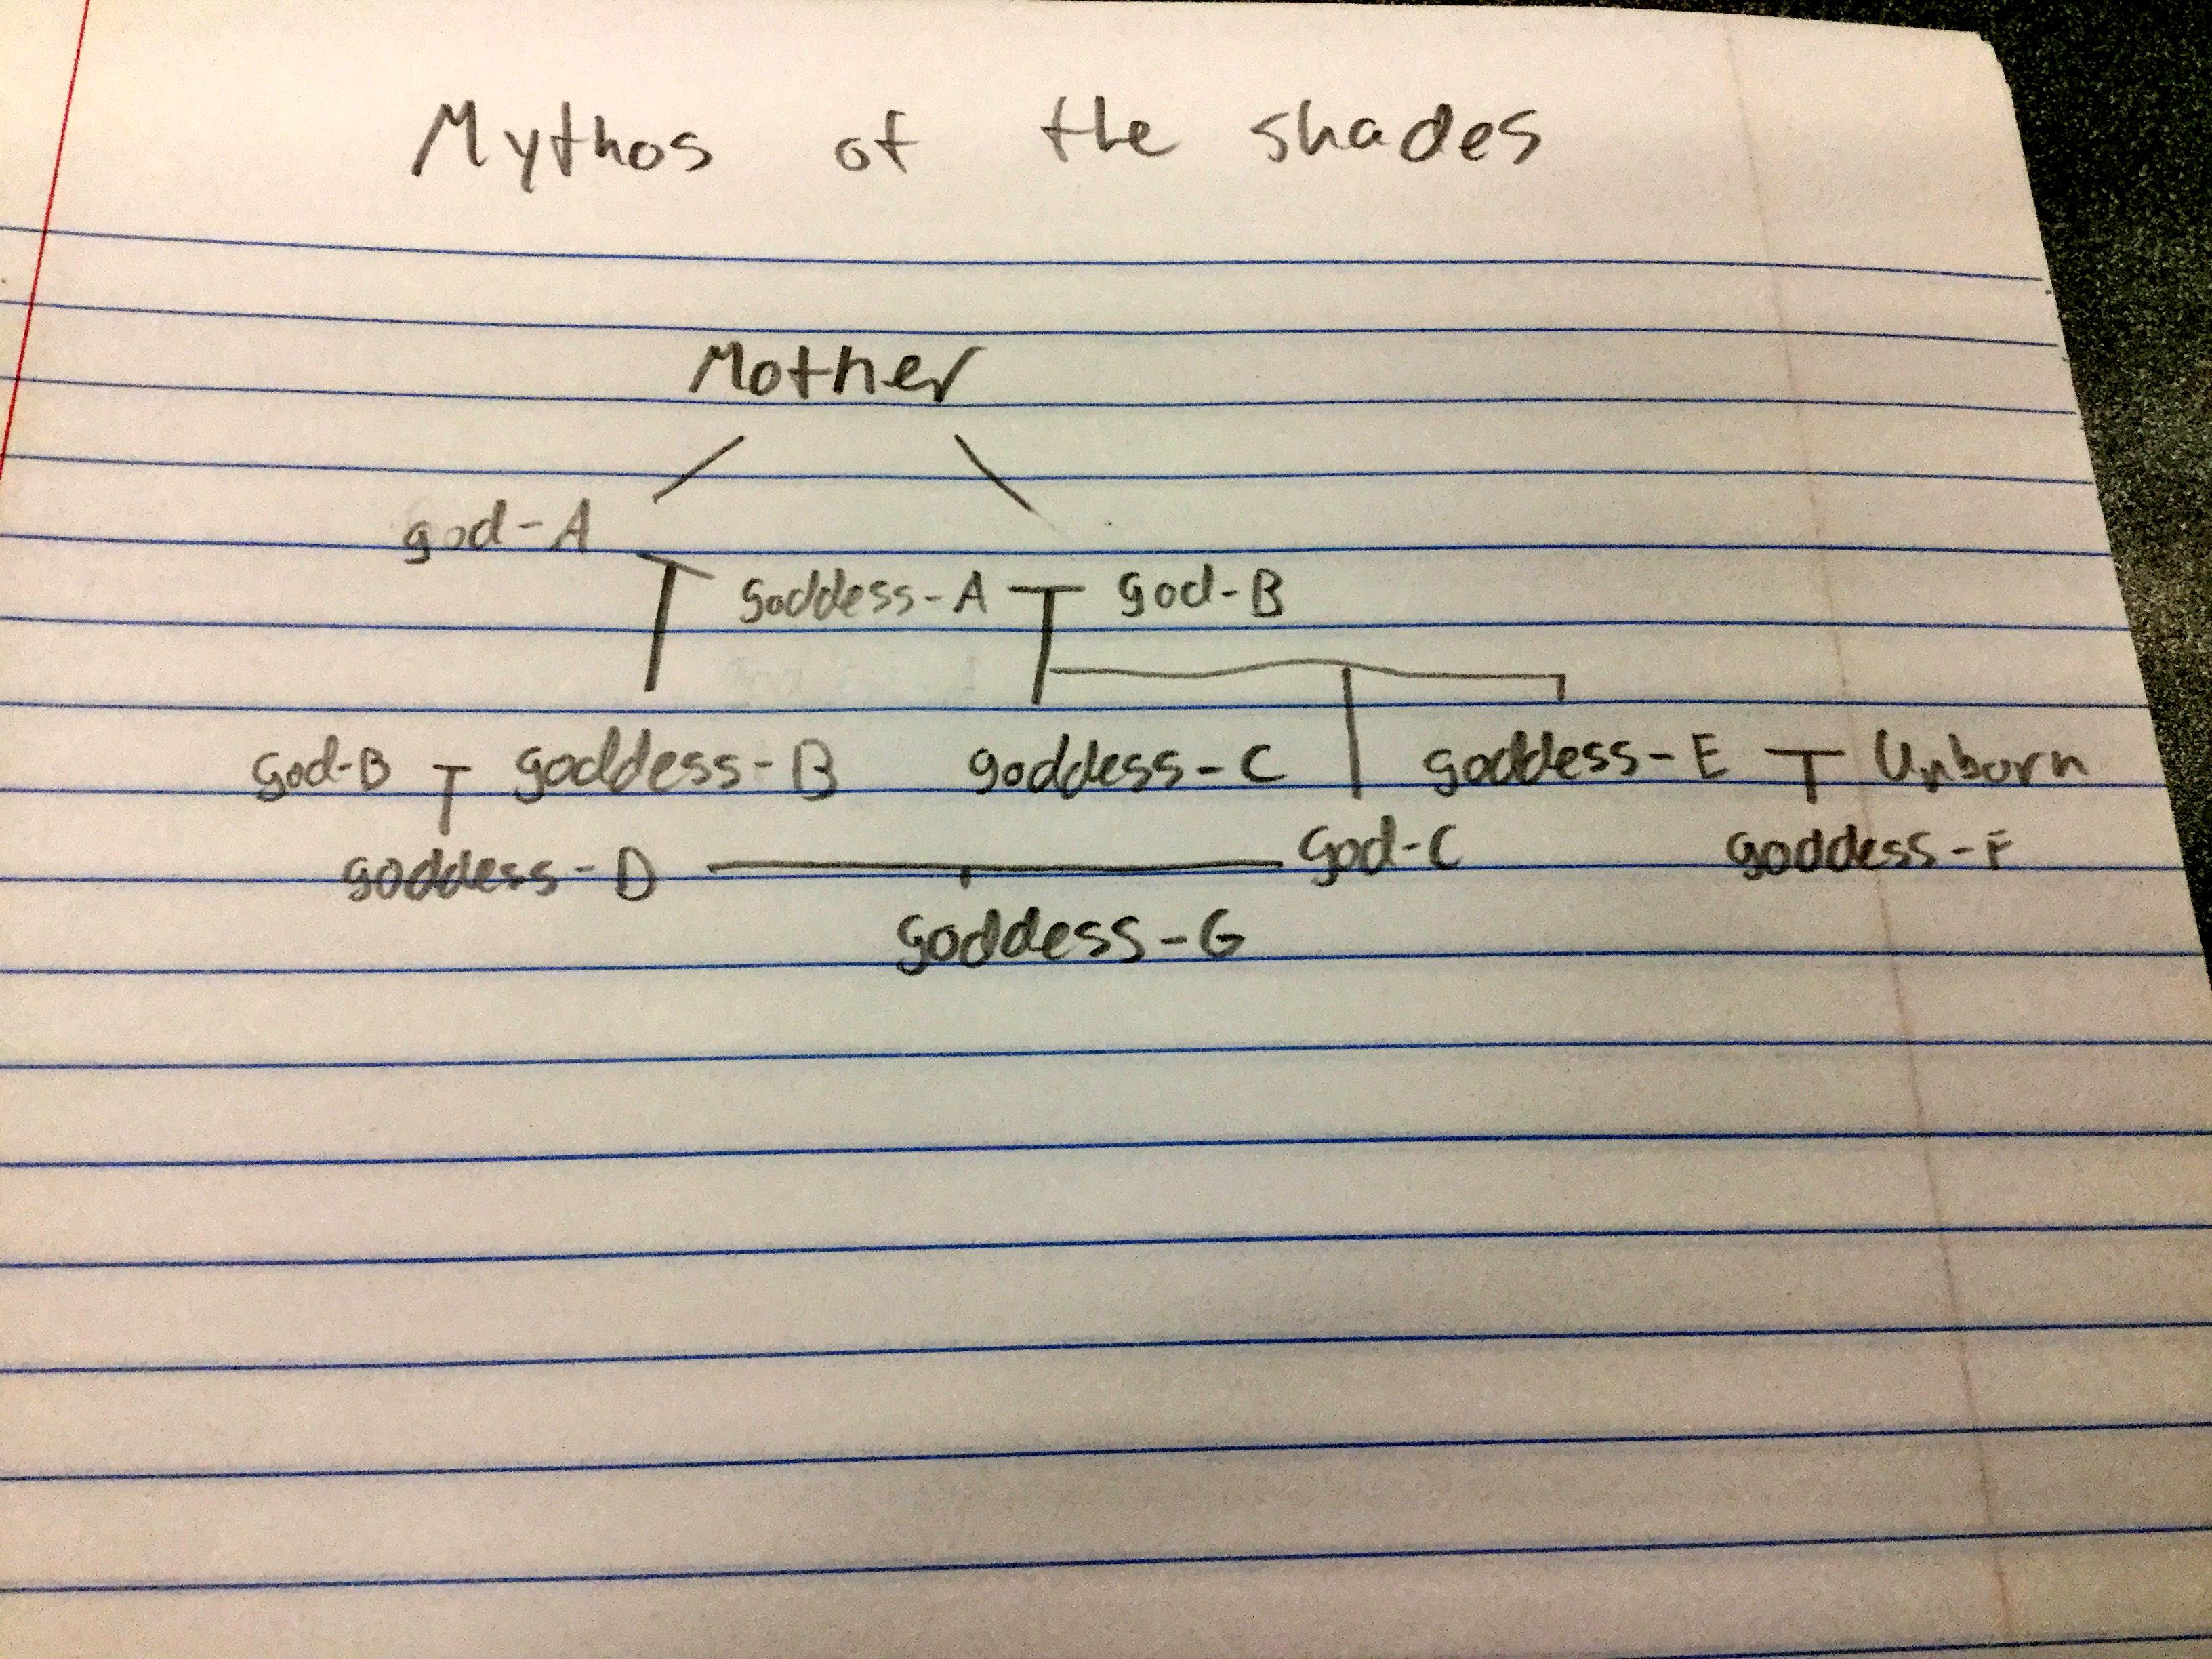 Mythos of the shades
Mother
god-A
goddess-A god-B
god-B goddess-B goddess-C goddess-E Unborn
goddess-D god-C goddess-F
goddess-G